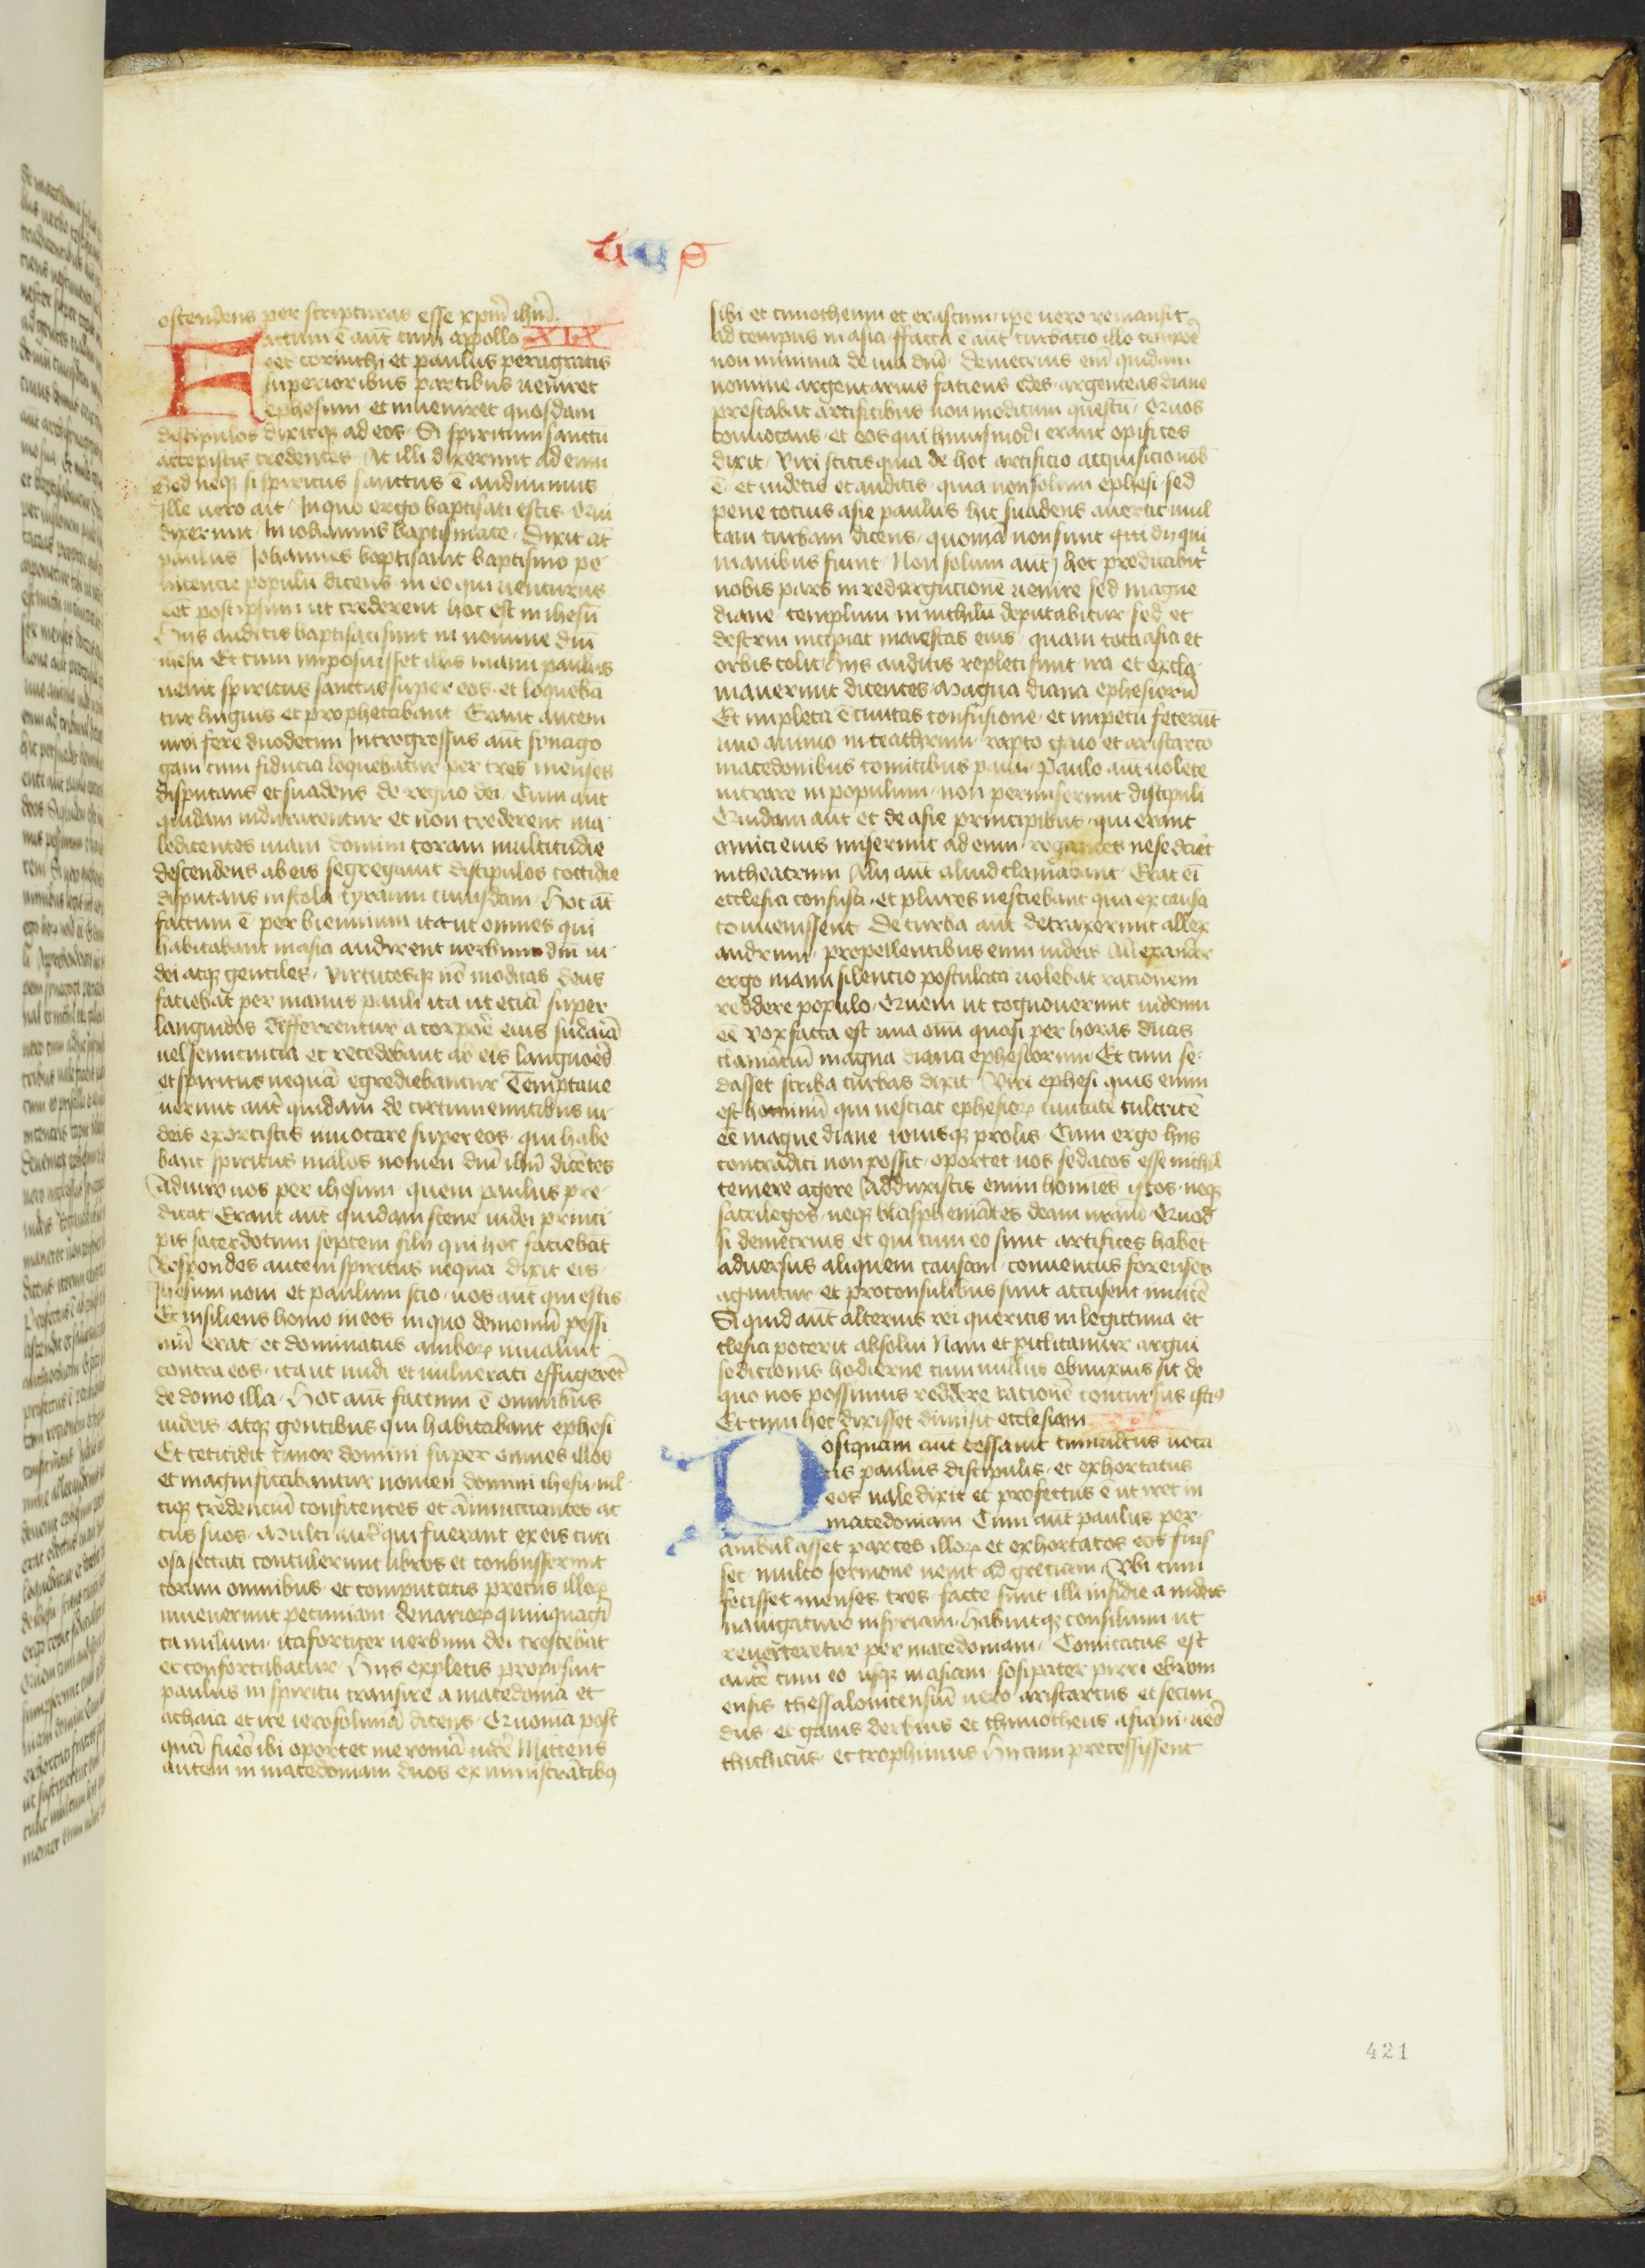 uus
ostendens per scripturas esse xpm̄ ihm̄
Factum ē aūt cum appollo XIX
eēt corinthi et paulus peragratis
superioribus partibus ueniret
ephesum et inueniret quosdam
discipulos dixitqꝫ ad eos · Si spiritum sanctū
accepistis credentes · At illi dixerunt ad eum
Sed neqꝫ si spiritus sanctus ē audiuimus
Ille uero ait · In quo ergo baptisati estis · Qui
dixerunt · In iohannis baptismate · Dixit āt
paulus Johannes baptisauit baptismo pe
nitencie populū dicens in eo qui uenturus
eēt post ipsum ut crederent hoc est in ihesū
Hiis auditis baptisati sunt in nomine dnī
ihesu Et cum imposuisset illis manū paulus
uenit spiritus sanctus super eos · et loqueba
tur linguis et prophetabant Erant autem
uiri fere duodecim Introgressus aūt synago
gam cum fiducia loquebatur per tres menses
disputans et suadens de regno dei · Cum aūt
quidam indurarentur et non crederent ma
ledicentes uiam domini coram multitudīe
descendens ab eis segregauit discipulos cottidie
disputans in scola tyranni cuiusdam · Hoc āt
factum ē per biennium ita ut omnes qui
habitabant in asia audirent uerbum dnī iu
dei atqꝫ gentiles · Virtutesqꝫ nō modicas deus
faciebat per manus pauli ita ut etiā super
languidos defferrentur a corpore eius sudaria
uel semicinctia et recedebant ab eis languores
et spiritus nequā egrediebantur Temptaue
uerunt aūt quidam de circumeuntibus iu
deis exorcistis inuocare super eos · qui habe
bant spiritus malos nomen dnī ihū dicētes
Adiuro uos per ihesum quem paulus pre
dicat · Erant aūt quidam sceue iudei princi
pis sacerdotum septem filii qui hoc faciebāt
Respondes autem spiritus nequā dixit eis ·
Jhesum noui et paulum scio · uos aūt qui estis
Et insiliens homo in eos in quo demoniū pessi
mū erat · et dominatus amboꝝ inualuit
contra eos · ita ut nudi et uulnerati effugerēt
de domo illa · Hoc aūt factum ē omnibus
iudeis · atqꝫ gentibus qui habitabant ephesi
Et cecicidit timor domini super omnes illos
et magnificabantur nomen domini ihesu mul
tiqꝫ credenciū confitentes et annunciantes ac
tus suos · Multi aūt qui fuerant ex eis curi
osa sectati contulerunt libros et conbusserunt
coram omnibus · et computatis preciis illoꝝ
inuenerunt pecuniam denarioꝝ quinquagī
ta milium · ita fortiter uerbum dei crescebat
et confortabatur · Hiis expletis proposuit
paulus in spiritu transire a macedonia et
achaia et ire ierosolimā dicens · Quoniā post
quā fuero ibi oportet me romā uidē Mittens
autem in macedoniam duos ex ministrātibꝰ
sibi et timotheum et erastum ipe uero remansit
ad tempus in asia ffacta ē aūt turbacio illo tempoē
non minima de uia dnī · demetrius eni quidam
nomine argentarius faciens edes argenteas diane
prestabat artificibus non modicum questū · Quos
conuocans · et eos qui huiusmodi erant opifices
dixit · Viri scitis quia de hoc artificio acquisicio nob
ē et uidetis et auditis · quia non solum ephesi · sed
pene tocius asie paulus hic suadens auertit mul
tam turbam dicens · quoniā non sunt dii qui
manibus fiunt · Non solum aūt hec predicabit
nobis pars in redargucionē uenire sed magne
diane templum in nichilū deputabitur sed et
destrui incipiat maiestas eius · quam tota asia et
orbis colit · Hiis auditis repleti sunt ira et excla
mauerunt dicentes Magna diana ephesiorū
Et impleta ē ciuitas confusione · et impetū fecerūt
uno animo in teathrum · rapto gaio et aristarco
macedonibus comitibus pauli · Paulo aūt uolēte
intrare in populum non permiserunt discipuli
Quidam aūt et de asie principibus · qui erant
amici eius miserunt ad eum · rogantes ne se daret
in theatrum Alii aūt aliud clamabant · Erat eī
ecclesia confusa · et plures nesciebant qua ex causa
conuenissent De turba aūt detraxerunt allex
andrum · propellentibus eum iudeis Allexander
ergo manu silencio postulata uolebat racionem
reddere populo · Quem ut cognouerunt iudeum
eē vox facta est una oīm quasi per horas duas
clamāciū magna diana ephesiorum · Et cum se
dasset scriba turbas dixit Viri ephesi quis enim
est hominū qui nesciat ephesioꝝ ciuitatē cultricē
eē magne diane iouisqꝫ prolis · Cum ergo hiis
contradici non possit · oportet uos sedatos esse nichil
temere agere Adduxistis enim homines istos · neqꝫ
sacrilegos · neqꝫ blasphemātes deam uram Quod
si demetrius et qui cum eo sunt artifices habēt
aduersus aliquem causam · conuentus forenses
aguntur et proconsulibus sunt accusent inuicē
Si quid aūt alterius rei queritis in legittima ec
clesia poterit absolui Nam et piclitamur argui
sedicionis hodierne cum nullus obnoxius sit de
quo nos possimus reddere racionē concursus istiꝰ
Et cum hec dixisset dimisit ecclesiam
Postquam aūt cessauit tumultus uoca
tis paulus discipulis · et exhortatus
eos uale dixit et profectus ē ut iret in
macedoniam Cum aūt paulus per
ambulasset partes illoꝝ et exhortatos eos fuis
set multo sermone uenit ad greciam · Vbi cum
fecisset menses tres · facte sunt illi insidie a iudeis
nauigaturo in syriam · habuitqꝫ consilium ut
reuerteretur per macedoniam · Comitatus est
autē cum eo usqꝫ in asiam · sosipater pirri ebrom
ensis thessalonicensiū uero aristarcus et secun
dus · et gaius derbius et thimotheus asiani · ueo
thichicus · et trophimus Hii cum precessissent
421